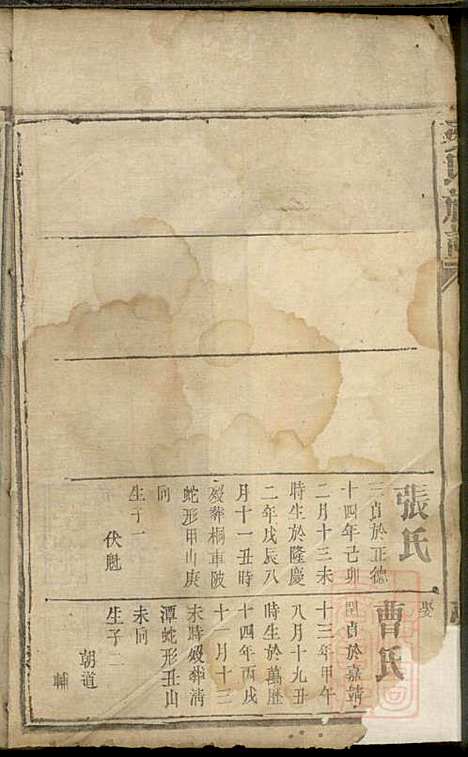 氏族譜
張氏
三貞於正德
十四年己卯
二月十三未
時生於隆慶
二年戊辰八
月十一丑時
歿葬桐車陂
蛇形甲山庚
向
生子一
伏魁
娶
曹氏
貞於嘉靖
十三年甲午
八月十九丑
時生於萬歷
十四年丙戌
十一月十三
未時歿葬清
潭蛇形丑山
未向
生子二
朝道
輔